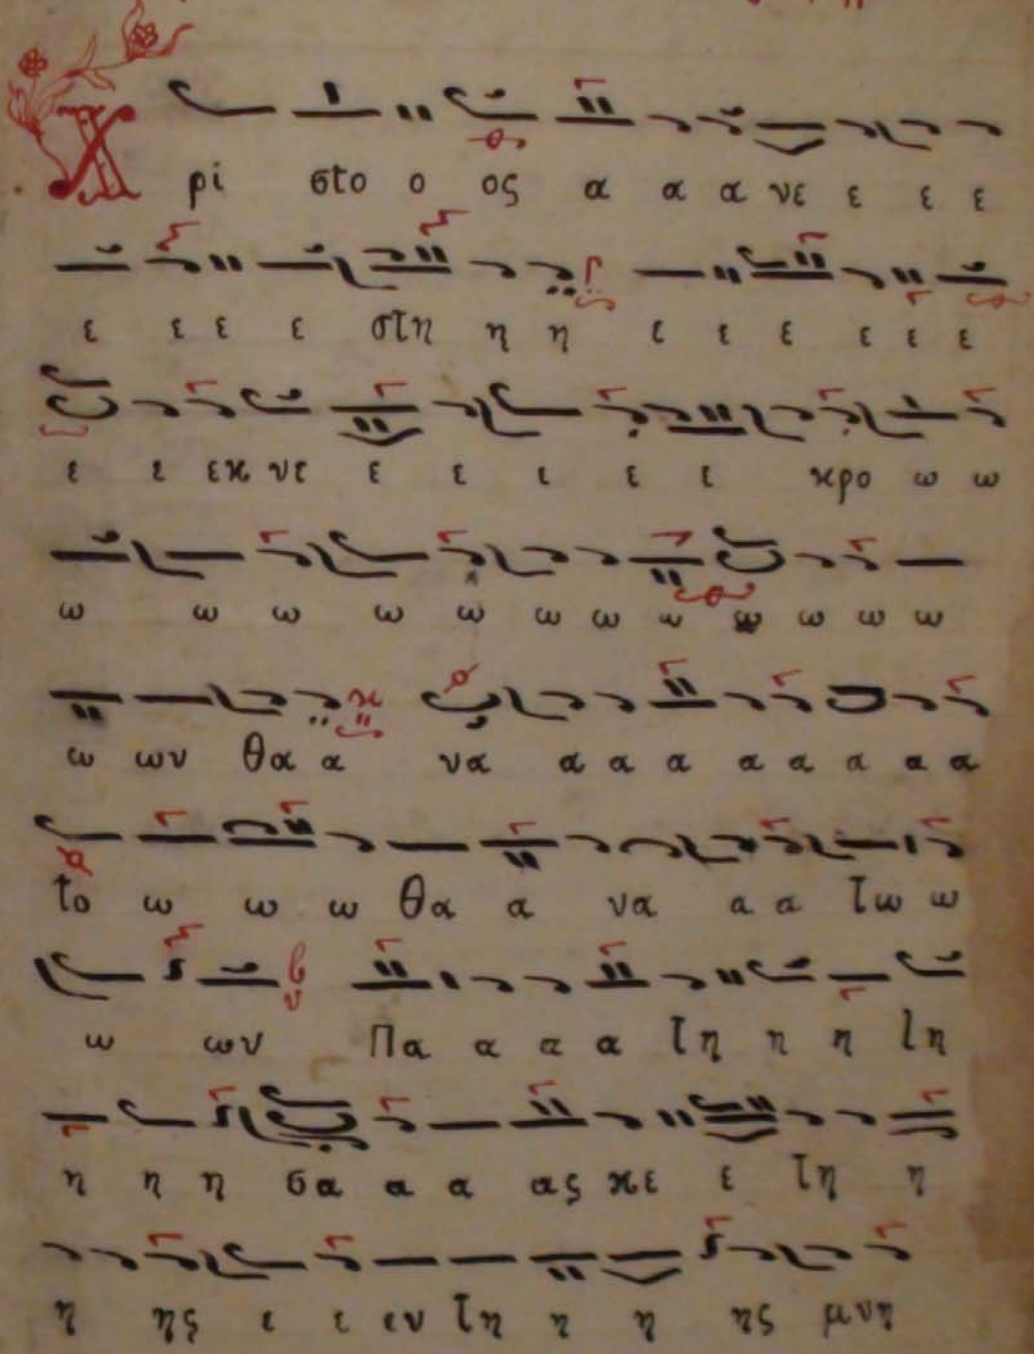 Χ ρι στο ο ος α α α νε ε ε ε
ε ε ε ε στη η η ε ε ε ε ε ε
ε ε εκ νε ε ε ε ε ε κρο ω ω
ω ω ω ω ω ω ω ω ω ω ω ω
ω ων θα α να α α α α α α α α
το ω ω ω θα α να α α τω ω
ω ων Πα α α α τη η η τη
η η η σα α α ας κε ε τη η
η ης ε ε εν τη η η ης μνη